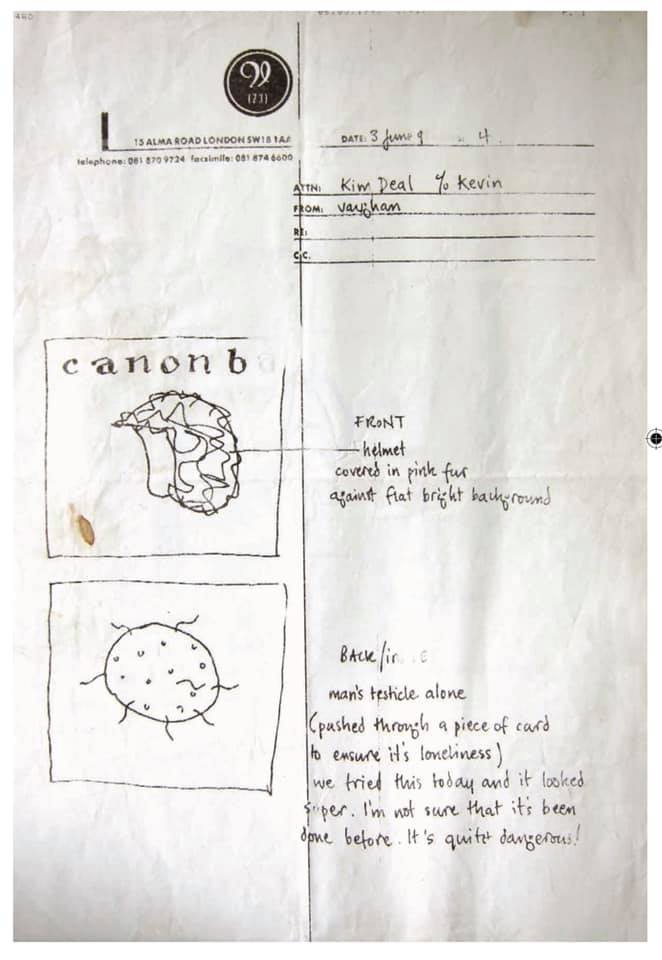 V
(23)
15 ALMA ROAD LONDON SW18 1AA
telephone: 081 870 9724 facsimile: 081 874 6600
DATE: 3 June 9 4
ATTN: Kim Deal c/o Kevin
FROM: vaughan
RE:
C.C.
canonba
FRONT
helmet
covered in pink fur
against flat bright background
BACK/
man's testicle alone
(pushed through a piece of card
to ensure it's loneliness)
we tried this today and it looked
super. I'm not sure that it's been
done before. It's quitet dangerous!